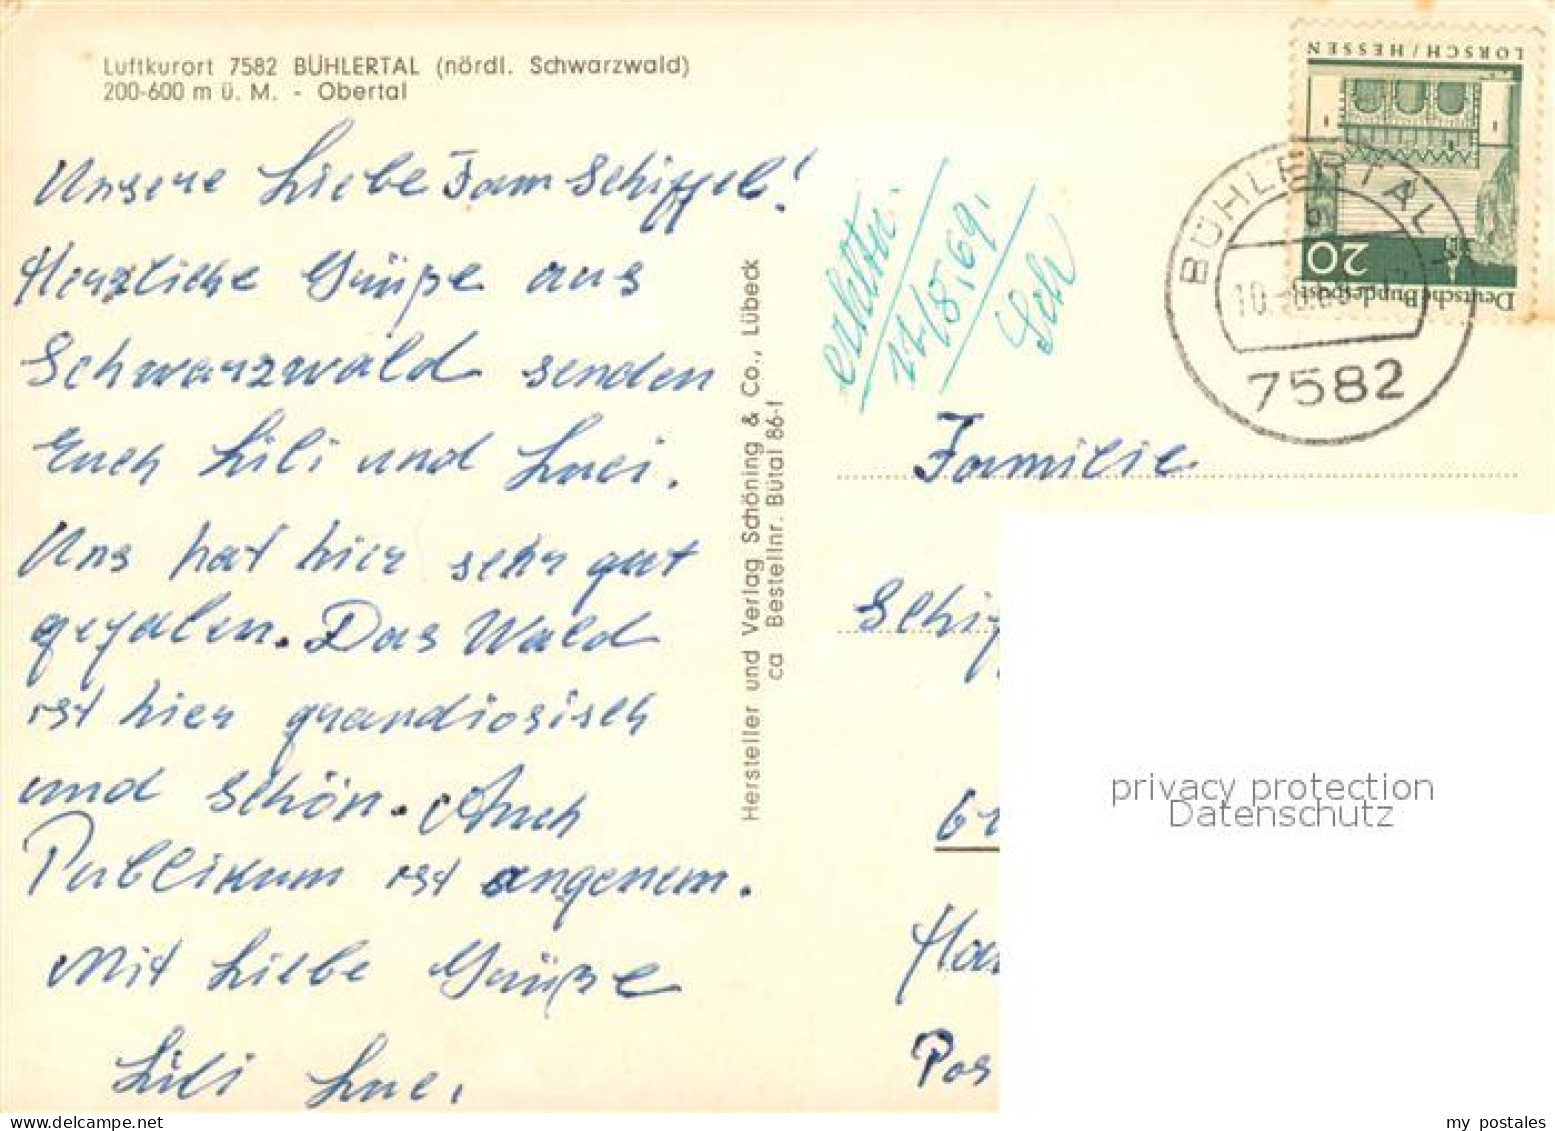 Luftkurort 7582 BÜHLERTAL (nördl. Schwarzwald)
200-600 m ü. M. - Obertal
Unsere Liebe Fam Schiffel!
Herzliche Grüße aus
Schwarzwald senden
Euch Lili und
Uns hat hier sehr gut
gefalen. Das Wald
ist hier grandiosisch
und schön. Auch
Publikum ist angenem.
Mit Liebe Grüße
Lili
Hersteller und Verlag Schöning & Co., Lübeck
ca Bestellnr. Bütal 86-f
69.
Sch
LORSCH/HESSEN
20
Deutsche Bundespost
BÜHLERTAL
b
10.
7582
Familie
Schif
Gr
Ha
Pos
privacy protection
Datenschutz
my postales